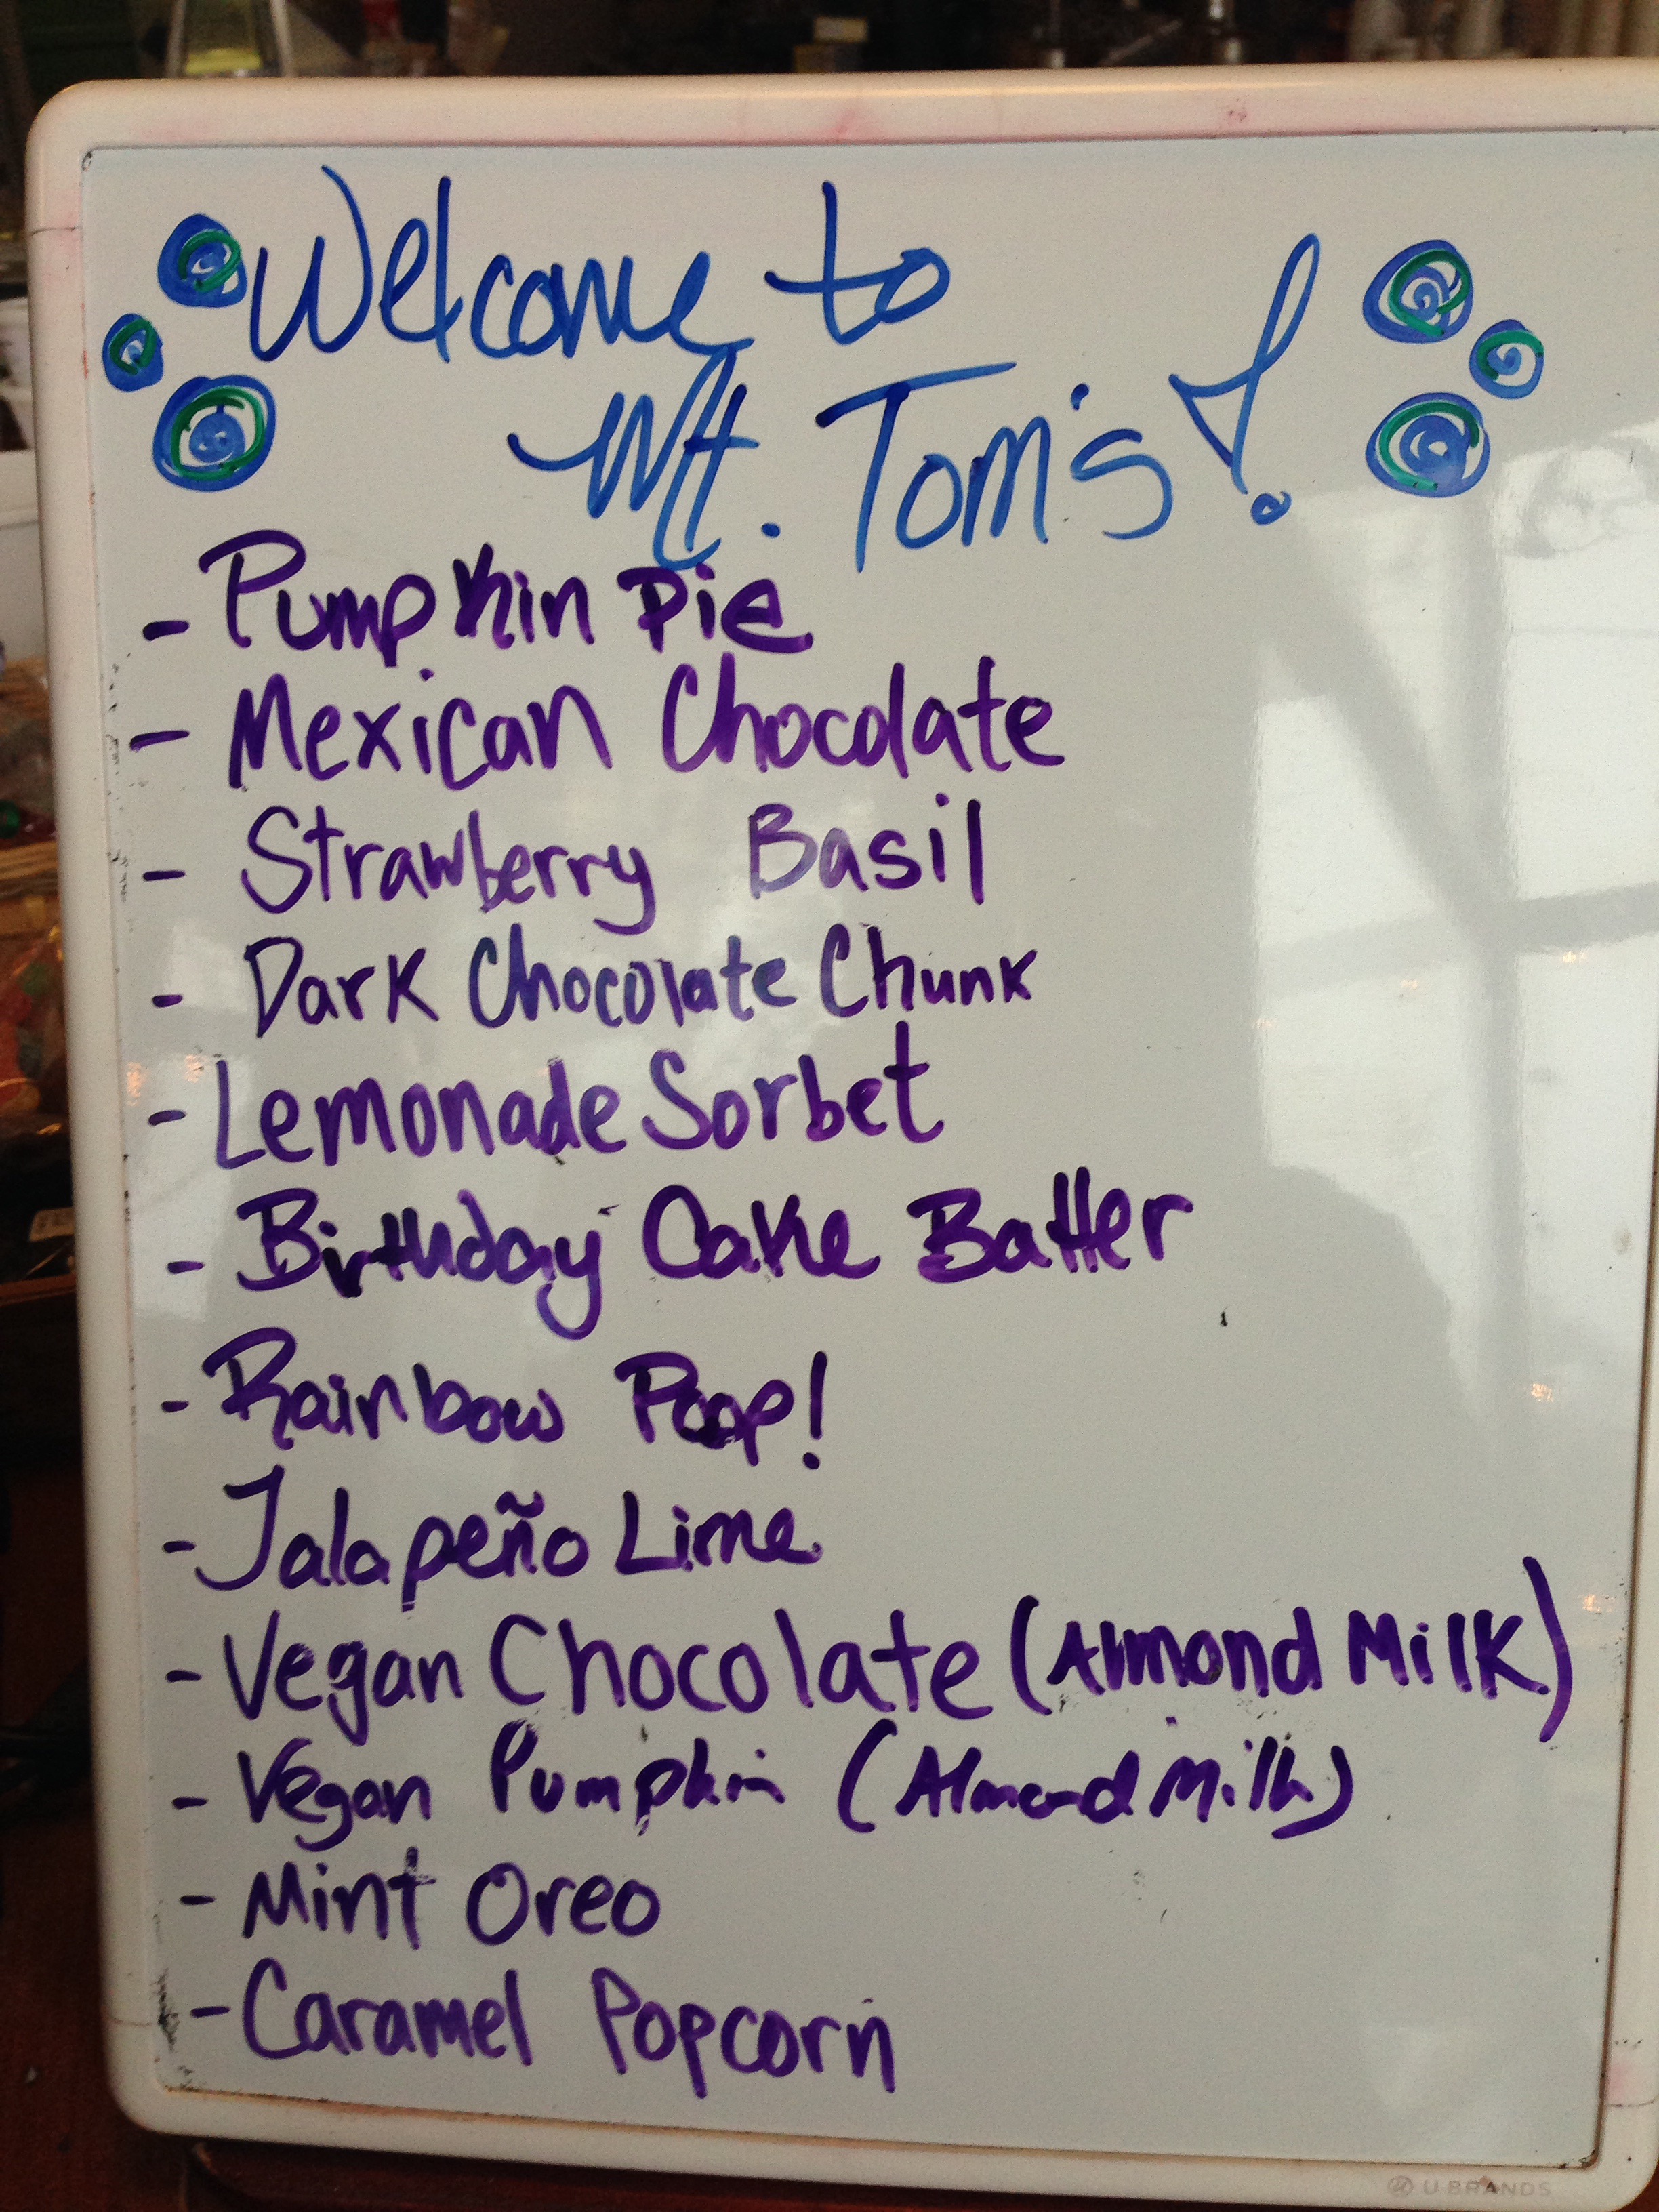 Welcome to
Mt. Tom's!
- Pumpkin Pie
- Mexican Chocolate
- Strawberry Basil
- Dark Chocolate Chunk
- Lemonade Sorbet
- Birthday Cake Batter
- Rainbow Poop!
- Jalapeño Lime
- Vegan Chocolate (Almond Milk)
- Vegan Pumpkin (Almond Milk)
- Mint Oreo
- Caramel Popcorn
U BRANDS